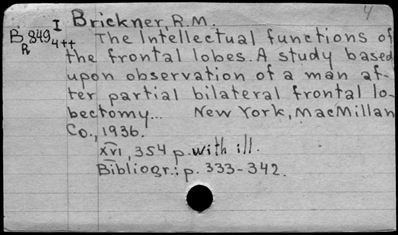 4
I Brickner, R.M.
B 849 4++ The Intellectual functions of
R the frontal lobes. A study based
upon observation of a man af-
ter partial bilateral frontal lo-
bectomy... New York, MacMillan
Co., 1936.
XVI, 354 p. with ill.
Bibliogr.: p. 333-342.